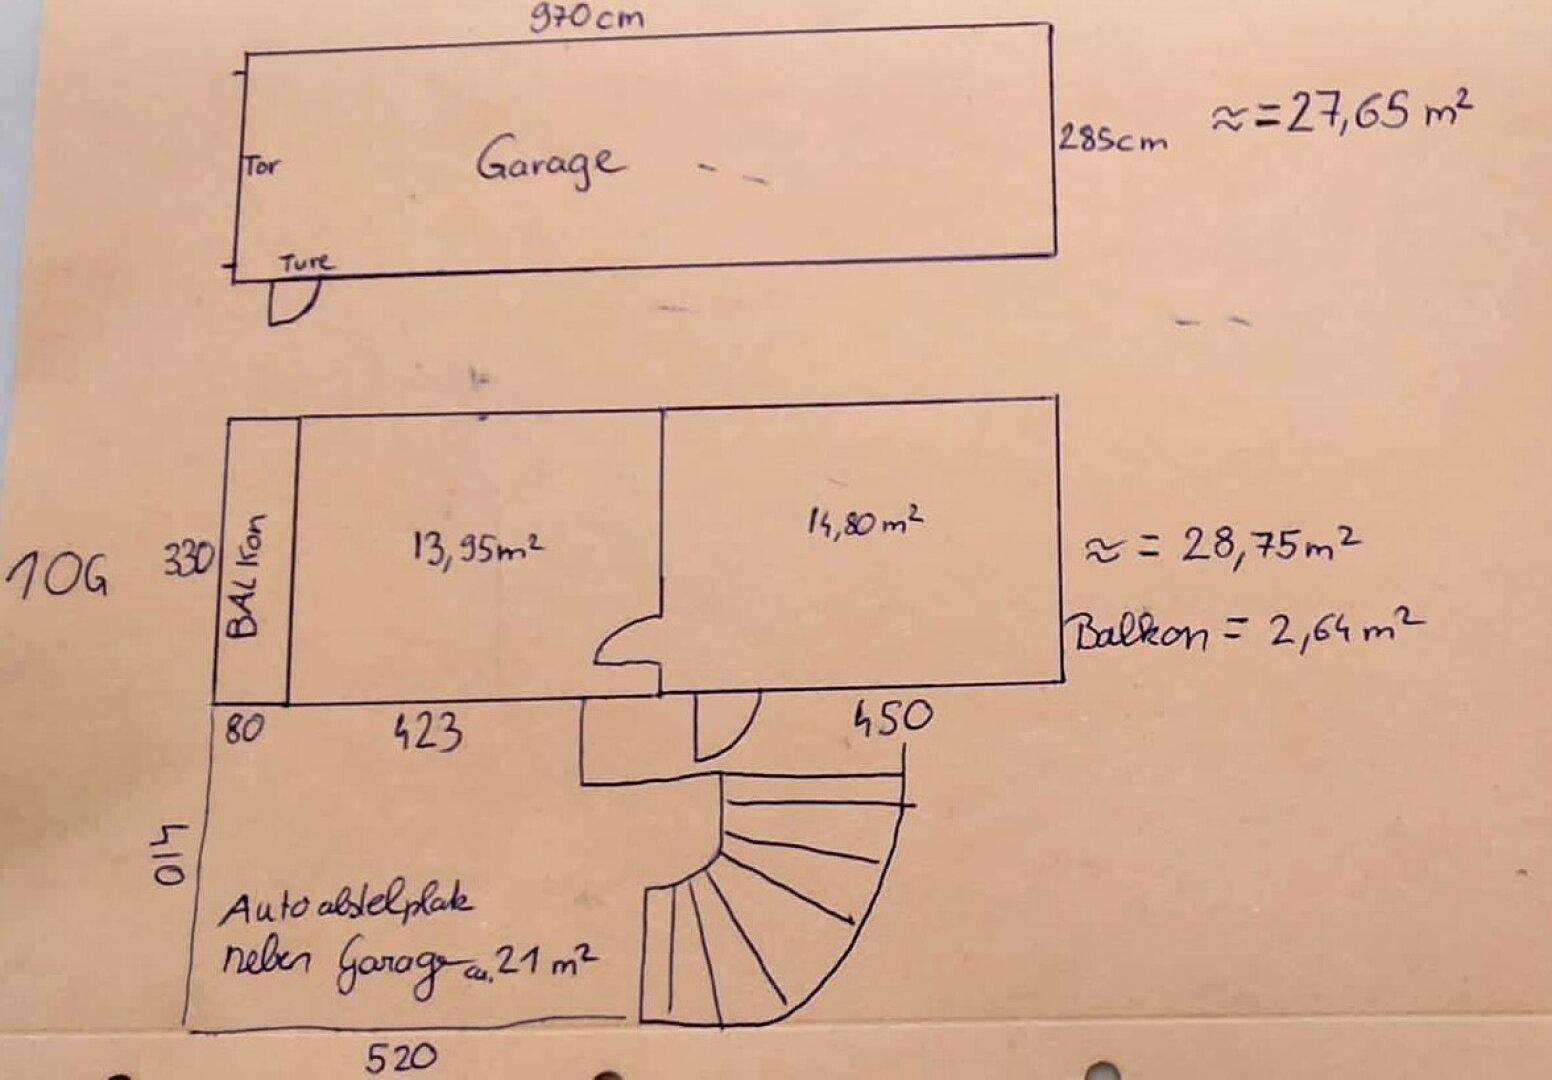 970cm
Tor
Garage
285cm
≈=27,65 m²
Ture
1OG
330
BALKon
13,95m²
14,80m²
≈ = 28,75m²
Balkon = 2,64m²
80
423
450
410
Autoabstelplatz
neben Garage ca. 21 m²
520